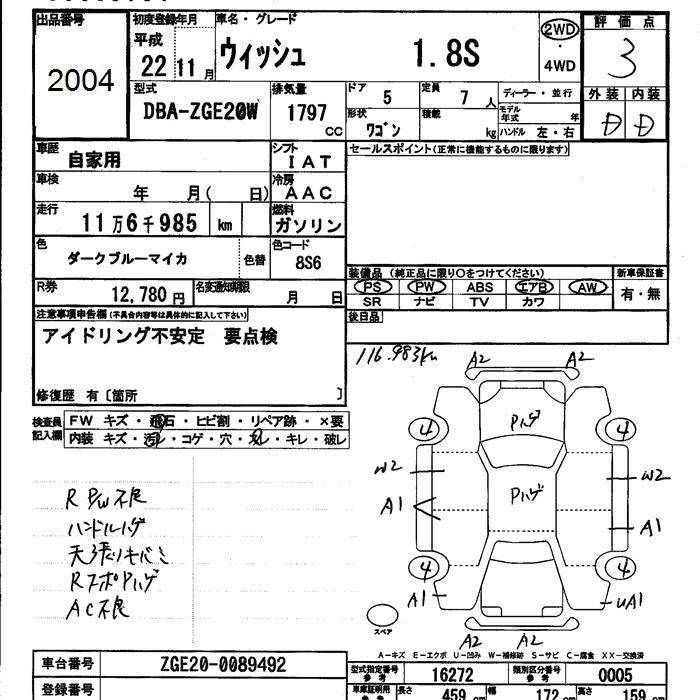 出品番号
2004
初度登録年月
平成
22年11月
車名・グレード
ウィッシュ 1.8S
2WD
・
4WD
評価点
3
外装 内装
D D
型式
DBA-ZGE20W
排気量
1797
CC
ドア
5
定員
7人
形状
ワゴン
積載
kg
ディーラー・並行
モデル年式 年
ハンドル 左・右
車歴
自家用
シフト
IAT
車検
年 月( 日)
冷房
AAC
走行
11万6千985 km
燃料
ガソリン
色
ダークブルーマイカ
色替
色コード
8S6
R券
12,780円
名変通知期限
月 日
セールスポイント(正常に機能するものに限ります)
装備品(純正品に限り○をつけてください)
PS PW ABS エアB AW
SR ナビ TV カワ
新車保証書
有・無
後日品
注意事項申告欄(不具合内容等は具体的に記入して下さい)
アイドリング不安定 要点検
修復歴 有〔箇所 〕
検査員記入欄
FW キズ・飛石・ヒビ割・リペア跡・×要
内装 キズ・汚れ・コゲ・穴・スレ・キレ・破レ
116.983km
A2 A2
Pハゲ
4 4
W2 W2
Pハゲ
A1 A1
4 4
A1 UA1
A2 A2
スペア
R P/W不良
ハンドルハゲ
天張りキバミ
RスポPハゲ
AC不良
A-キズ E-エクボ U-凹み W-補修跡 S-サビ C-腐食 XX-交換済
車台番号
ZGE20-0089492
登録番号
型式指定番号
参考
16272
類別区分番号
参考
0005
車庫証明用
参考
長さ 459 cm 幅 172 cm 高さ 159 cm